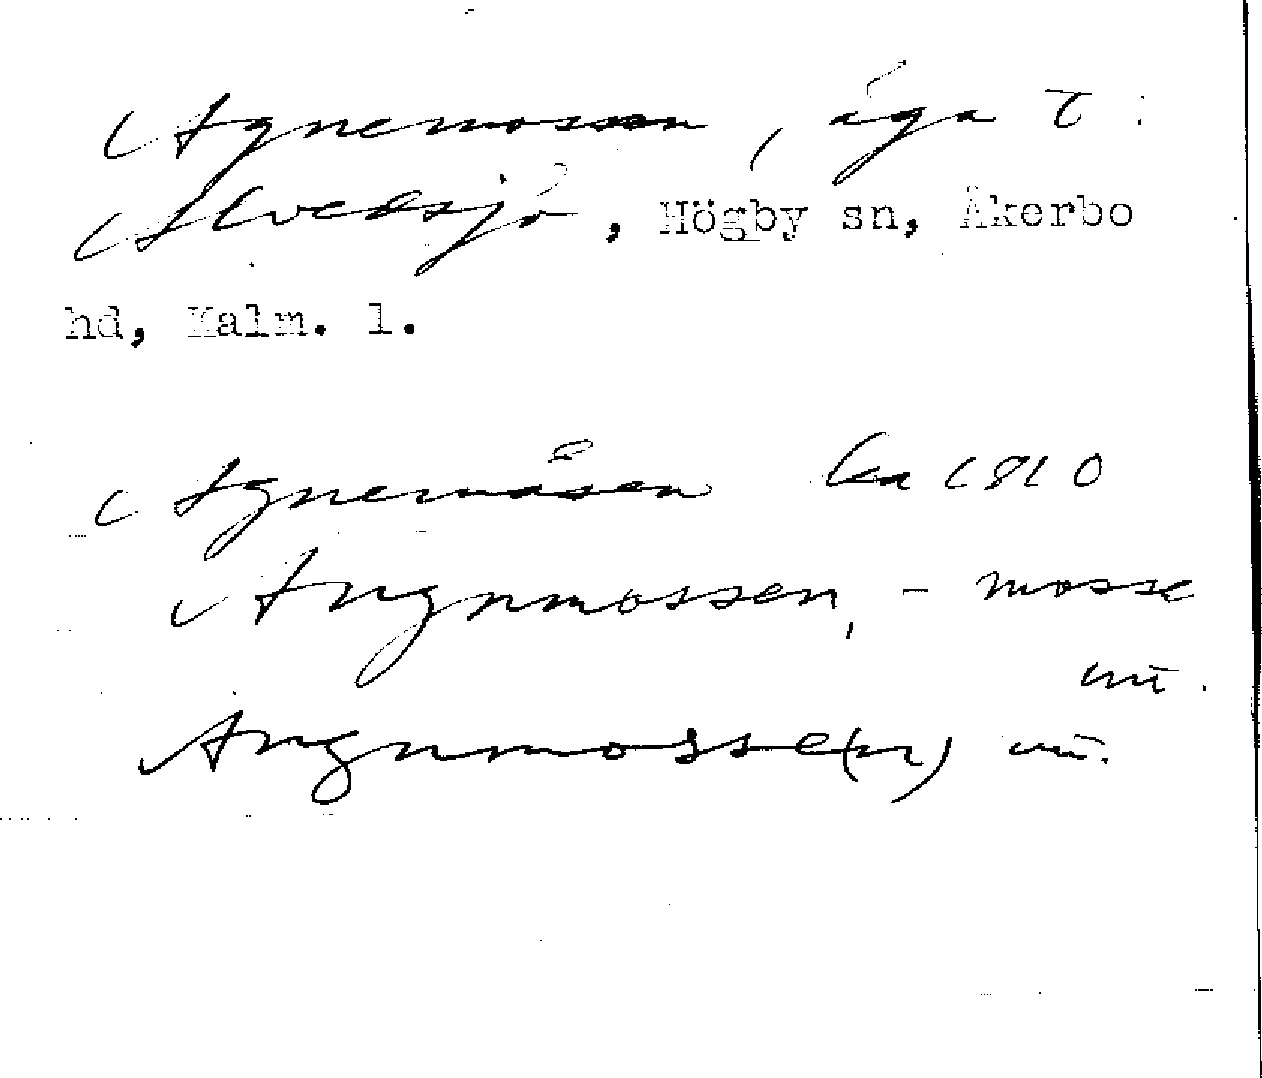 Agnemossen, äga t.
Alvedsjö, Högby sn, Åkerbo
hd, Kalm. l.
Agnemåsen ka 1810
Angnmossen, - mosse
nu.
Angnmosse(n) nu.